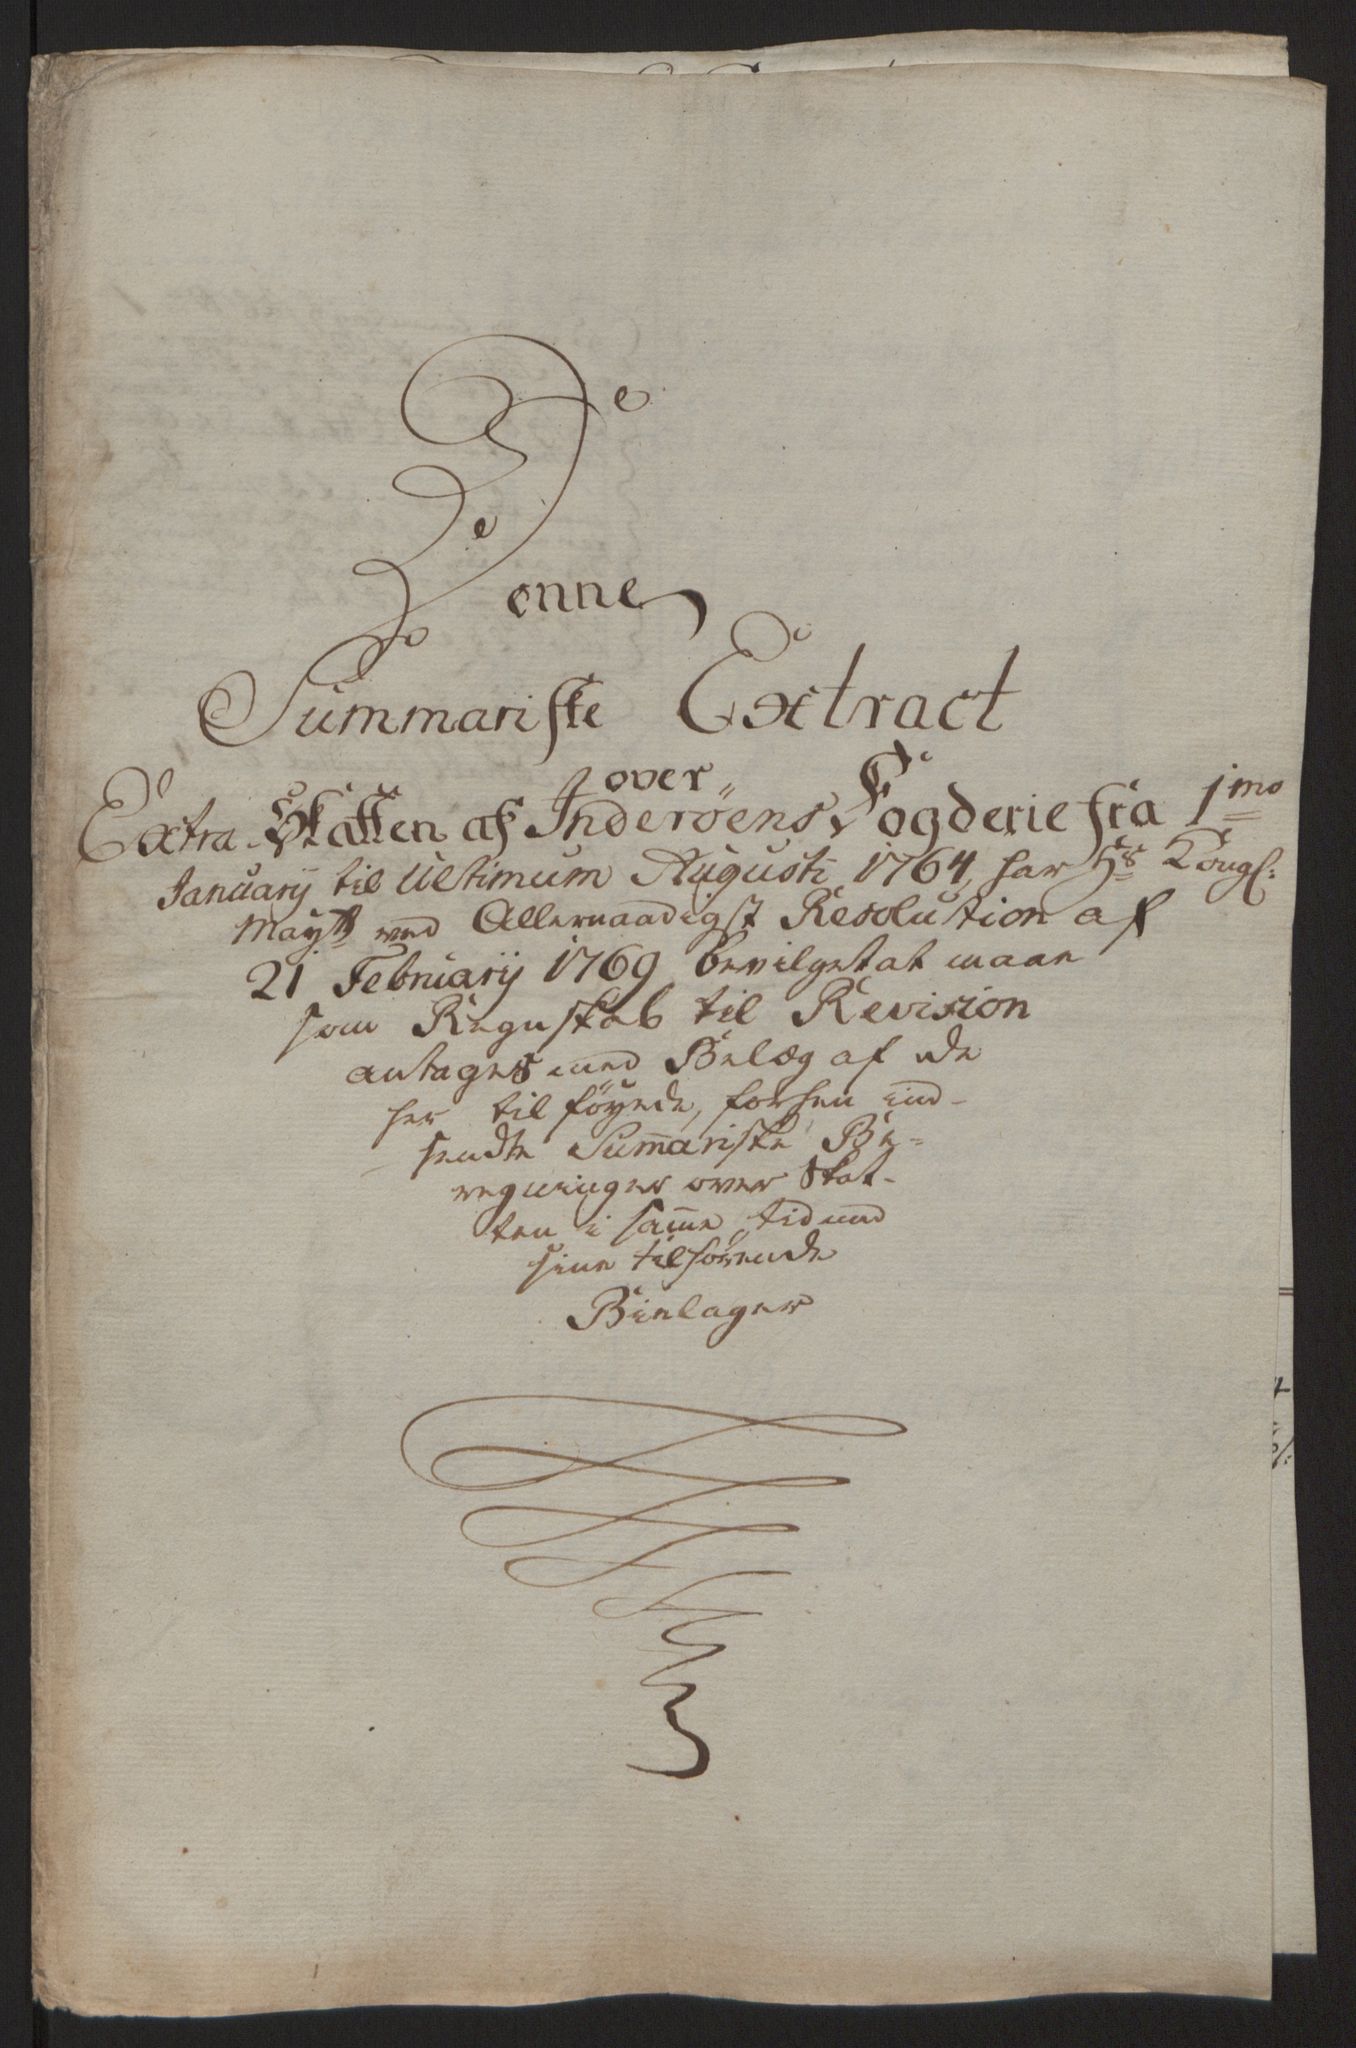 Denne
Summariske Extract
over
Extra Skatten af Inderöens Fogderie fra 1mo
Januarij til Ultimum Augusti 1764, har Hs Kongl:
Mayt ved Allernaadigst Resolution af
21 Februarij 1769 bevilget at maae
som Regnskab til Revision
antages med Belæg af de
her til föyede, forhen ind-
sendte Sum̄ariske Be-
regninger over Skat-
ten i sam̄e tid med
sine tilhörende
Bielager